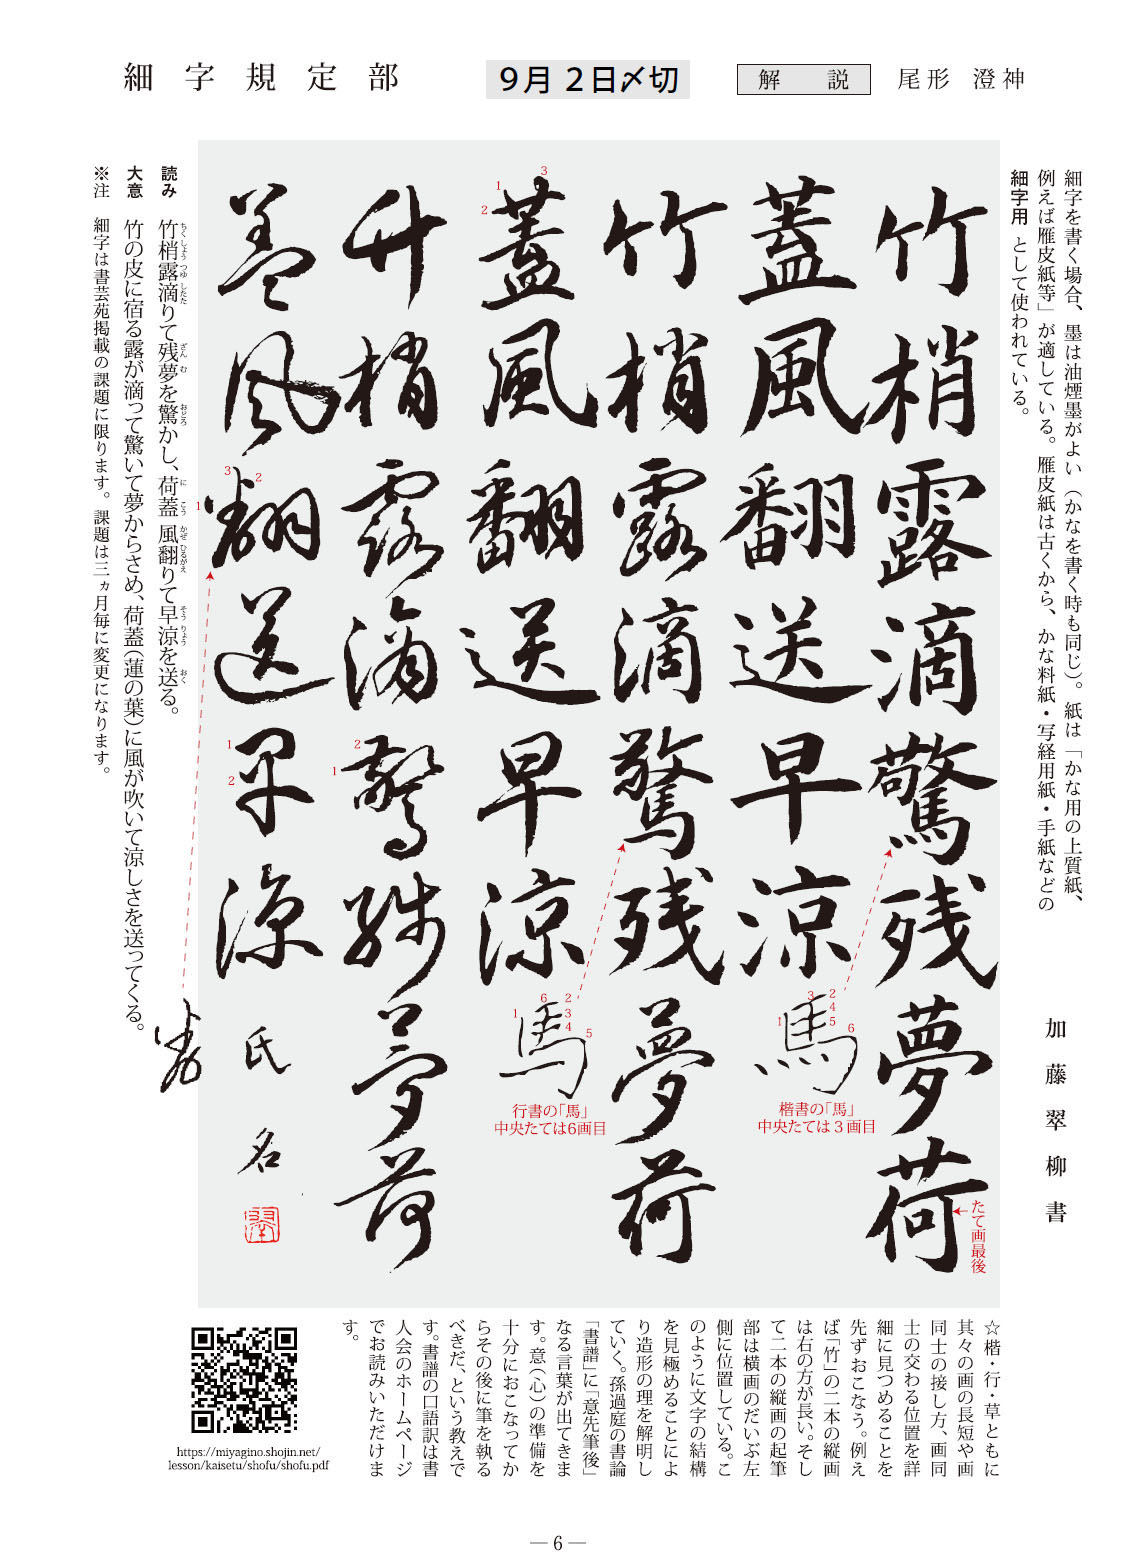 細字規定部
９月２日〆切
解　説
尾形 澄神
細字を書く場合、墨は油煙墨がよい（かなを書く時も同じ）。紙は「かな用の上質紙、
例えば雁皮紙等」が適している。雁皮紙は古くから、かな料紙・写経用紙・手紙などの
細字用 として使われている。
加藤翠柳書
竹梢露滴驚残夢荷
たて画最後
蓋風翻送早涼
馬
1
3
2
4
5
6
楷書の「馬」
中央たては３画目
竹梢露滴驚残夢荷
蓋風翻送早涼
3
1
2
馬
6
2
3
4
1
5
行書の「馬」
中央たては6画目
竹梢露滴驚残夢荷
2
1
蓋風翻送早涼
3
2
1
1
2
氏名
読み　竹梢露滴りて残夢を驚かし、荷蓋 風翻りて早涼を送る。
ちくしょう つゆ したた ざん む おどろ に こう かぜ ひるがえ そう りょう おく
大意　竹の皮に宿る露が滴って驚いて夢からさめ、荷蓋（蓮の葉）に風が吹いて涼しさを送ってくる。
※注　細字は書芸苑掲載の課題に限ります。課題は三ヵ月毎に変更になります。
☆楷・行・草ともに
其々の画の長短や画
同士の接し方、画同
士の交わる位置を詳
細に見つめることを
先ずおこなう。例え
ば「竹」の二本の縦画
は右の方が長い。そし
て二本の縦画の起筆
部は横画のだいぶ左
側に位置している。こ
のように文字の結構
を見極めることによ
り造形の理を解明し
ていく。孫過庭の書論
「書譜」に「意先筆後」
なる言葉が出てきま
す。意（心）の準備を
十分におこなってか
らその後に筆を執る
べきだ、という教えで
す。書譜の口語訳は書
人会のホームページ
でお読みいただけま
す。
https://miyagino.shojin.net/
lesson/kaisetu/shofu/shofu.pdf
― 6 ―